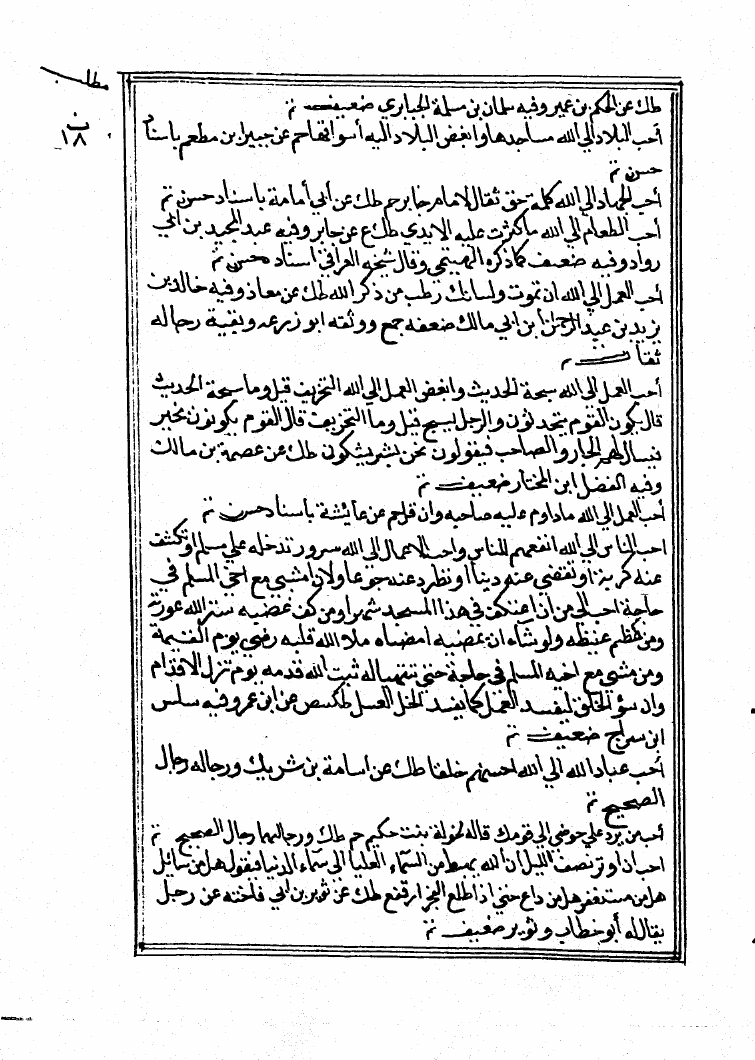 مطلب
ب
١٨
طك عن الحكم بن عمير وفيه سلمان بن سلمة الجبايري ضعيف
أحب البلاد الي الله مساجدها وابغض البلاد اليه أسواقها حم عن جبير ابن مطعم باسناد
حسن
أحب الجهاد الي الله كلمة حق تقال لامام جابر حم طك عن أبي أمامة باسناد حسن
أحب الطعام الي الله ما كثرت عليه الايدي طك ع عن جابر وفيه عبد المجيد بن ابي
رواد وفيه ضعيف كما ذكره الهيتمي وقال شيخه العراقي اسناده حسن
أحب العمل الي الله ان تموت ولسانك رطب من ذكر الله طك عن معاذ وفيه خالد بن
يزيد بن عبد الرحمن ابن ابي مالك ضعفه جمع ووثقه ابو زرعه وبقية رجاله
ثقات
أحب العمل الي الله سبحة الحديث وابغض العمل الي الله التحريف قيل وما سبحة الحديث
قال يكون القوم يتحدثون والرجل يسبح قيل وما التحريف قال القوم يكونون بخير
فيسالهم الجار والصاحب فيقولون نحن بشر يشكون طك عن عصمة بن مالك
وفيه الفضل ابن المختار ضعيف
أحب العمل الي الله ما داوم عليه صاحبه وان قل حم عن عايشة باسناد حسن
احب الناس الي الله انفعهم للناس واحب الاعمال الي الله سرور تدخله علي مسلم او تكشف
عنه كربة او تقضي عنه دينا او تطرد عنه جوعا ولان امشي مع اخي المسلم في
حاجة احب الي من ان اعتكف في هذا المسجد شهرا ومن كف غضبه ستر الله عورته
ومن كظم غيظه ولو شاء ان يمضيه امضاه ملا الله قلبه رضي يوم القيمة
ومن مشي مع اخيه المسلم في حاجة حتي تتهيا له ثبت الله قدمه يوم تزل الاقدام
وان سؤ الخلق ليفسد العمل كما يفسد الخل العسل طكسص عن ابن عمر وفيه سلس
ابن سراج ضعيف
أحب عباد الله الي الله احسنهم خلقا طك عن اسامة بن شريك ورجاله رجال
الصحيح
أحب من يرد علي حوضي الي قومك قاله لخولة بنت حكيم حم طك ورجالهما رجال الصحيح
احب ان اوتر نصف الليل ان الله يهبط من السماء العليا الي سماء الدنيا فيقول هل من سائل
هل من مستغفر هل من داع حتي اذا طلع الفجر ارتفع طك عن ثوير بن ابي فاخته عن رجل
يقال له أبو خطاب وثوير ضعيف